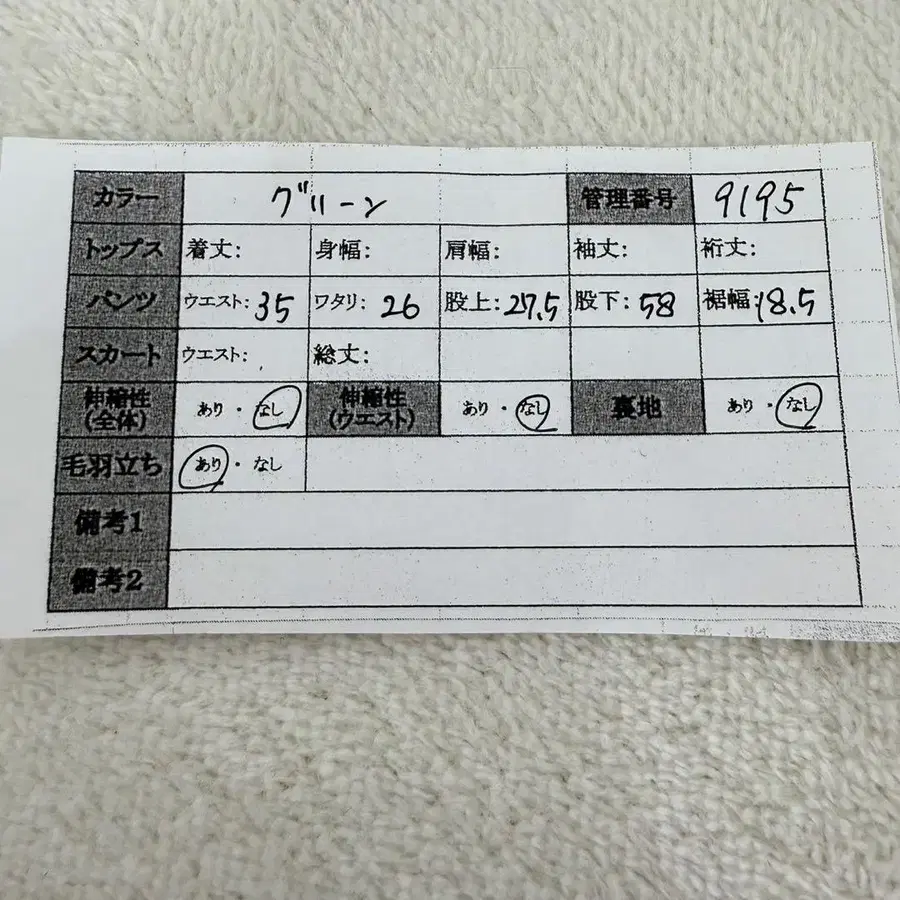 カラー グリーン 管理番号 9195
トップス 着丈: 身幅: 肩幅: 袖丈: 裄丈:
パンツ ウエスト: 35 ワタリ: 26 股上: 27.5 股下: 58 裾幅: 18.5
スカート ウエスト: 総丈:
伸縮性(全体) あり・なし 伸縮性(ウエスト) あり・なし 裏地 あり・なし
毛羽立ち あり・なし
備考1
備考2